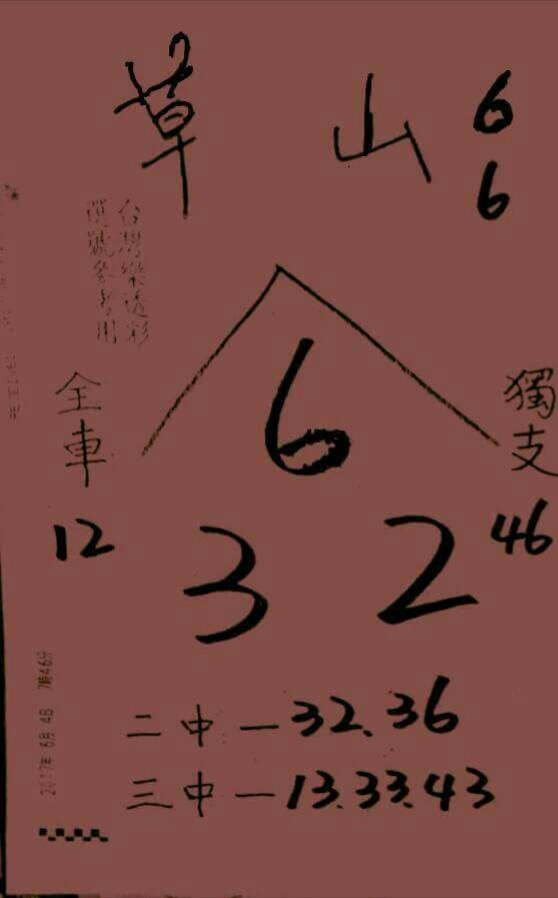 草山
6
6
台灣樂透彩
選號參考用
6
全車
獨支
12
46
3 2
二中—32.36
三中—13.33.43
2017年 6月 4日 7時46分